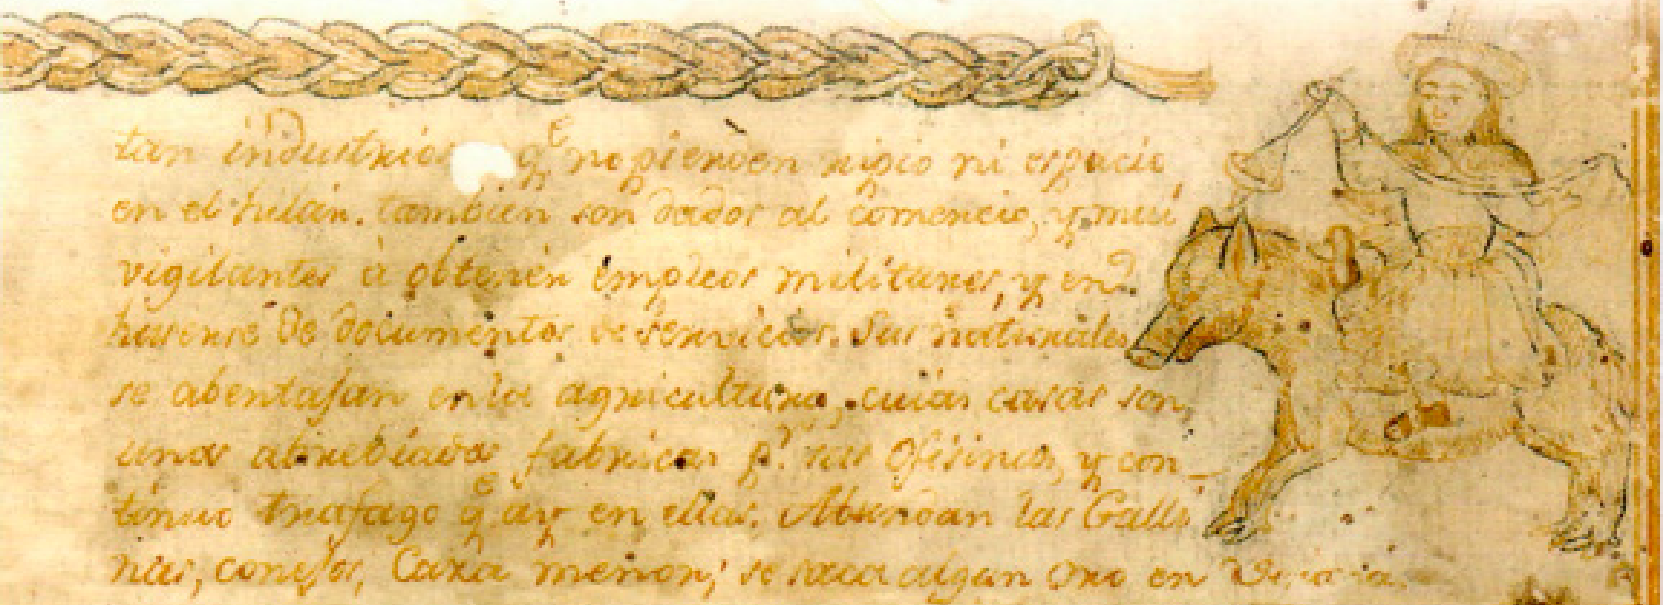 tan industrios qᵉ no pierden ripio ni espacio
en el hilar. tambien son dados al comercio, y mui
vigilantes à obtenér empleos militares, y en
haserse de documentos de servicios. Sus naturales
se abentajan en la agricultura, cuias casas son
unas abrebiadas fabricas pᵃ. sus Ofisinas, y con_
tinuo trafago qᵉ ay en ellas. Abundan las Galli
nas, conejos, Caza menor; se saca algun Oro en